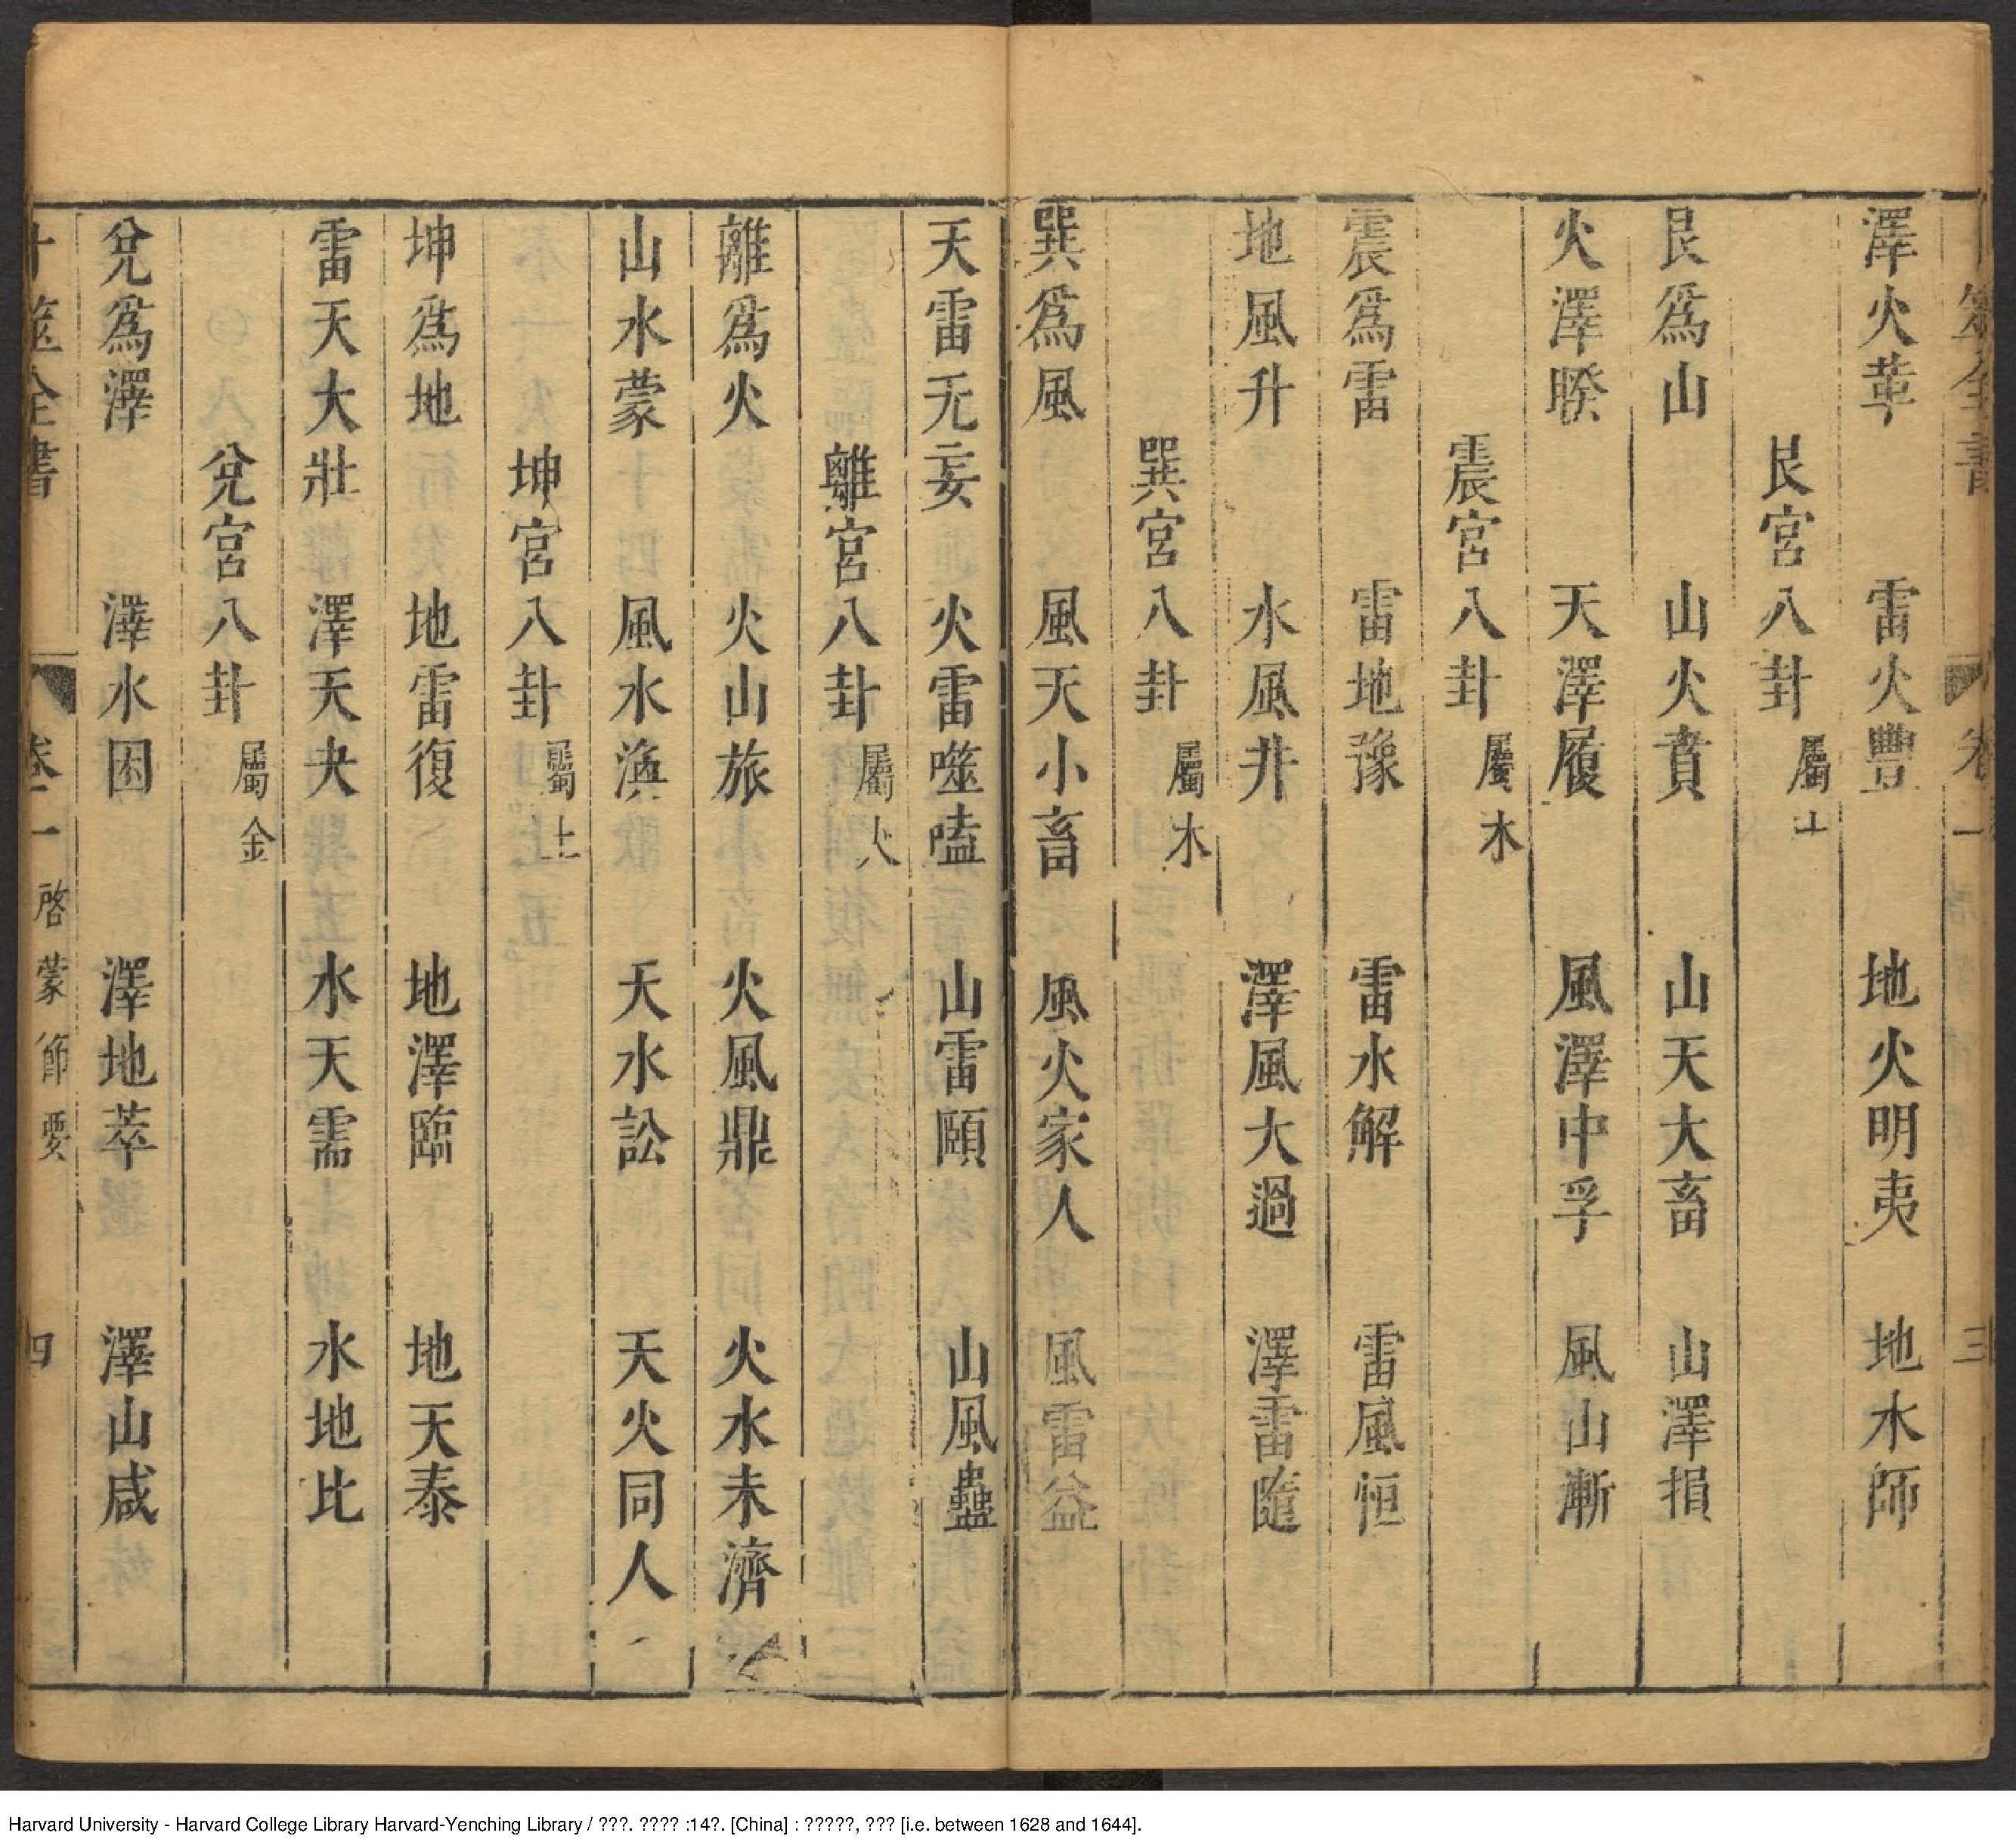 卜筮全書 卷一 三
澤火革 雷火豐 地火明夷 地水師
艮宮八卦 屬土
艮爲山 山火賁 山天大畜 山澤損
火澤睽 天澤履 風澤中孚 風山漸
震宮八卦 屬木
震爲雷 雷地豫 雷水解 雷風恒
地風升 水風井 澤風大過 澤雷隨
巽宮八卦 屬木
巽爲風 風天小畜 風火家人 風雷益
天雷无妄 火雷噬嗑 山雷頤 山風蠱
離宮八卦 屬火
離爲火 火山旅 火風鼎 火水未濟
山水蒙 風水渙 天水訟 天火同人
坤宮八卦 屬土
坤爲地 地雷復 地澤臨 地天泰
雷天大壯 澤天夬 水天需 水地比
兌宮八卦 屬金
兌爲澤 澤水困 澤地萃 澤山咸
卜筮全書 卷一 啓蒙節要 四
Harvard University - Harvard College Library Harvard-Yenching Library / ???. ???? :14?. [China] : ?????, ??? [i.e. between 1628 and 1644].